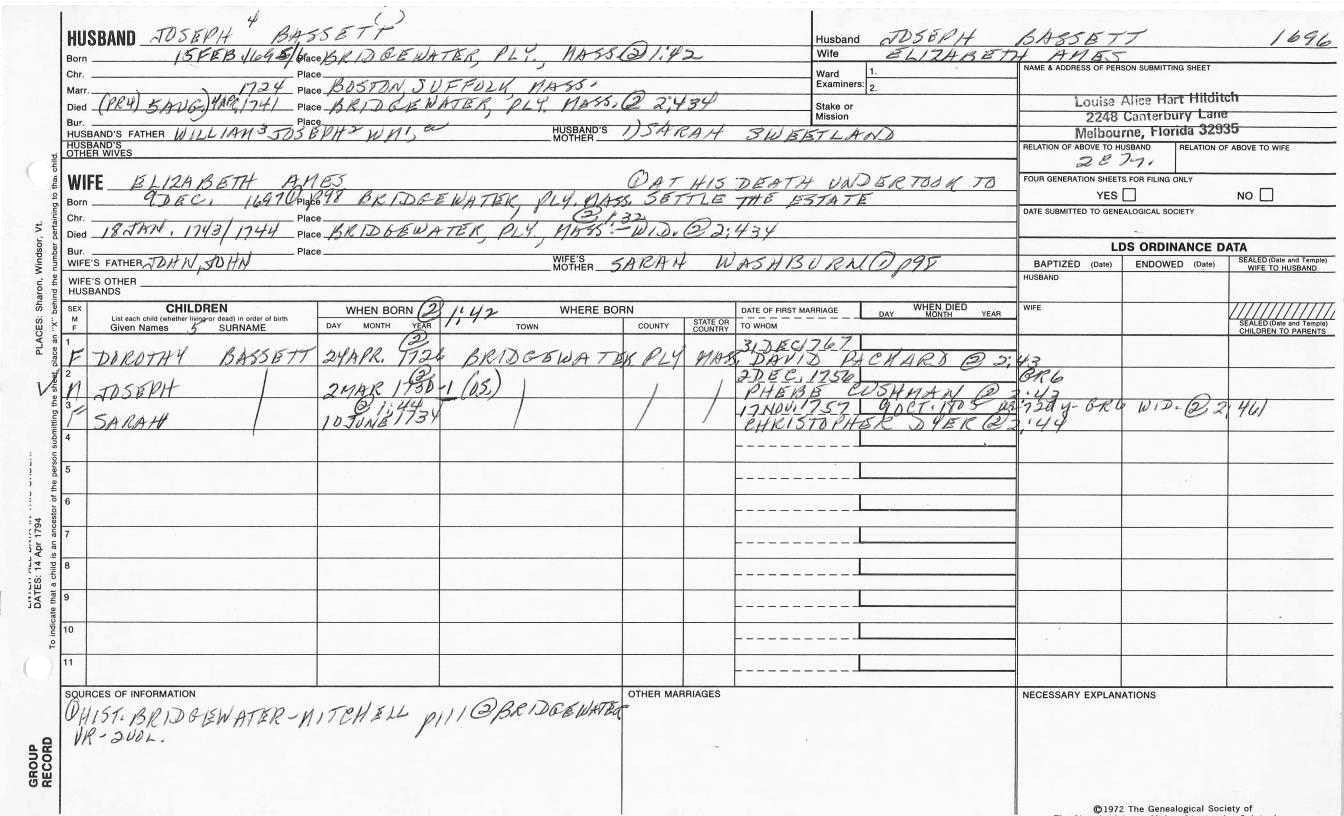 HUSBAND JOSEPH 4 BASSETT ( )
Born 15 FEB 1695/6 Place BRIDGEWATER, PLY, MASS ② 1:42
Chr. Place
Marr. 1724 Place BOSTON, SUFFOLK, MASS.
Died (PR4) 5 AUG.) 4 APR. 1741 Place BRIDGEWATER, PLY. MASS. ② 2:434
Bur. Place
HUSBAND'S FATHER WILLIAM³ JOSEPH² WM¹, HUSBAND'S MOTHER 1) SARAH SWEETLAND
HUSBAND'S OTHER WIVES
Husband JOSEPH BASSETT 1696
Wife ELIZABETH AMES
Ward 1.
Examiners: 2.
Stake or Mission
NAME & ADDRESS OF PERSON SUBMITTING SHEET
Louise Alice Hart Hilditch
2248 Canterbury Lane
Melbourne, Florida 32935
RELATION OF ABOVE TO HUSBAND RELATION OF ABOVE TO WIFE
FOUR GENERATION SHEETS FOR FILING ONLY
YES NO
DATE SUBMITTED TO GENEALOGICAL SOCIETY
WIFE ELIZABETH AMES ① AT HIS DEATH UNDERTOOK TO
Born 9 DEC. 1697 ① Place p98 BRIDGEWATER, PLY. MASS. SETTLE THE ESTATE
Chr. Place ② 1:32
Died 18 JAN. 1743/1744 Place BRIDGEWATER, PLY, MASS.- WID. ② 2:434
Bur. Place
WIFE'S FATHER JOHN, JOHN WIFE'S MOTHER SARAH WASHBURN ① p98
WIFE'S OTHER HUSBANDS
LDS ORDINANCE DATA
BAPTIZED (Date) ENDOWED (Date) SEALED (Date and Temple) WIFE TO HUSBAND
HUSBAND
WIFE
SEALED (Date and Temple) CHILDREN TO PARENTS
SEX M F
CHILDREN
List each child (whether living or dead) in order of birth
Given Names 5 SURNAME
WHEN BORN ② 1:42 WHERE BORN
DAY MONTH YEAR TOWN COUNTY STATE OR COUNTRY
DATE OF FIRST MARRIAGE
TO WHOM
WHEN DIED
DAY MONTH YEAR
1 31 DEC 1767
F DOROTHY BASSETT 24 APR. 1726 ② BRIDGEWATER PLY MASS. DAVID PACKARD @ 2:43
2 2 DEC, 1756 GR6
M JOSEPH 2 MAR 1730-1 ② (O.S.) PHEBE CUSHMAN @ 2:43
3 ② 1:44 17 NOV. 1757 9 OCT. 1805 72d y- GR6 WID. ② 2:461
F SARAH 10 JUNE 1734 CHRISTOPHER DYER @ 2:44
4
5
6
7
8
9
10
11
SOURCES OF INFORMATION
① HIST. BRIDGEWATER-MITCHELL p111 ② BRIDGEWATER
VR-2 VOL.
OTHER MARRIAGES
NECESSARY EXPLANATIONS
©1972 The Genealogical Society of
GROUP RECORD
DATES: 14 Apr 1794
PLACES: Sharon, Windsor, Vt.
To indicate that a child is an ancestor of the person submitting the sheet, place an "X" behind the number pertaining to that child.